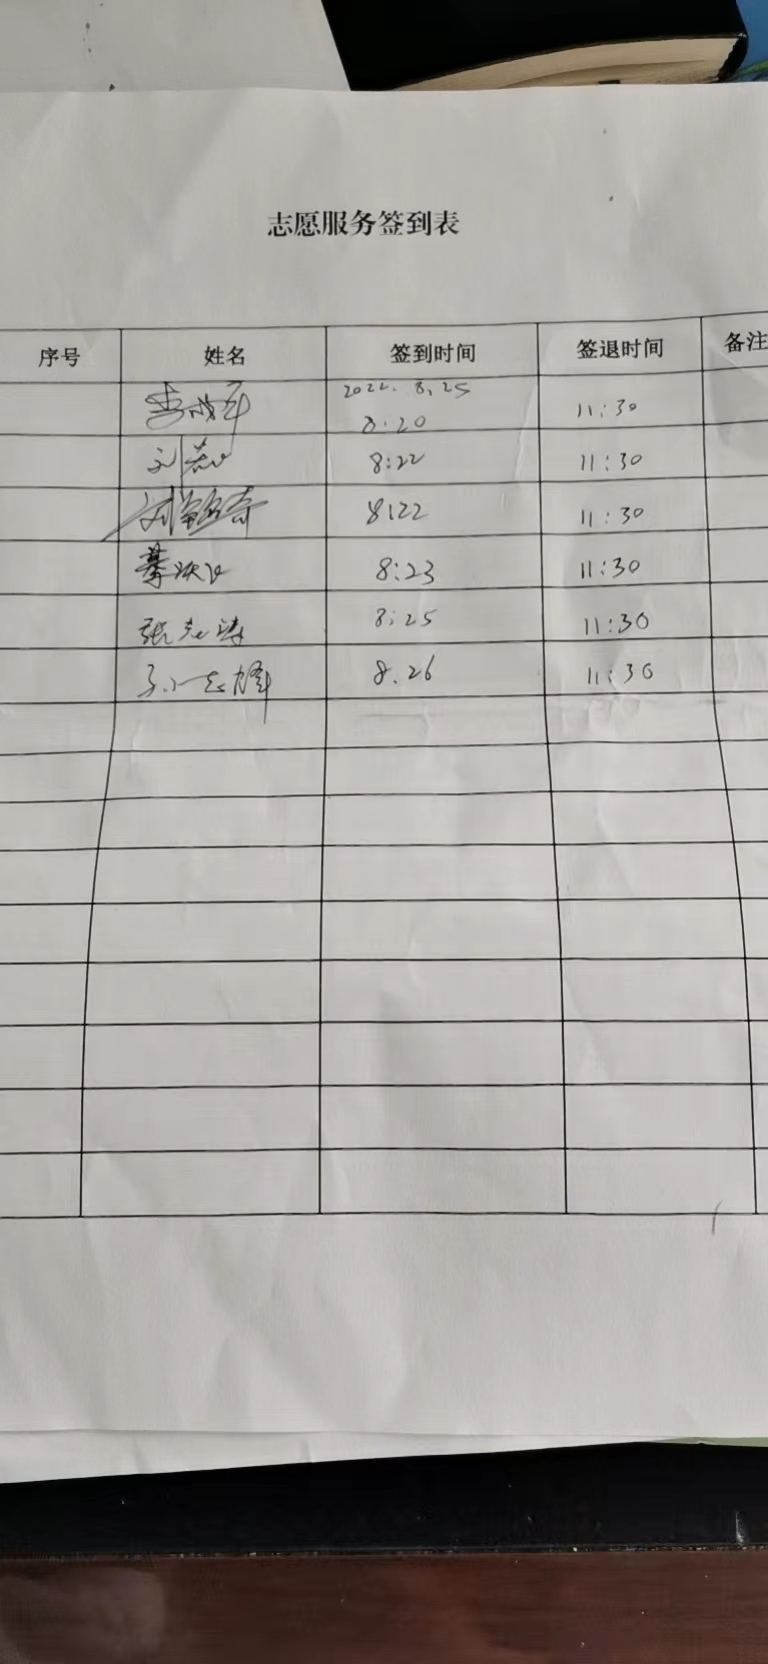 志愿服务签到表
序号 姓名 签到时间 签退时间 备注
2022. 8.25
8.20 11:30
8:22 11:30
8:22 11:30
8:23 11:30
张志涛 8:25 11:30
8.26 11:30